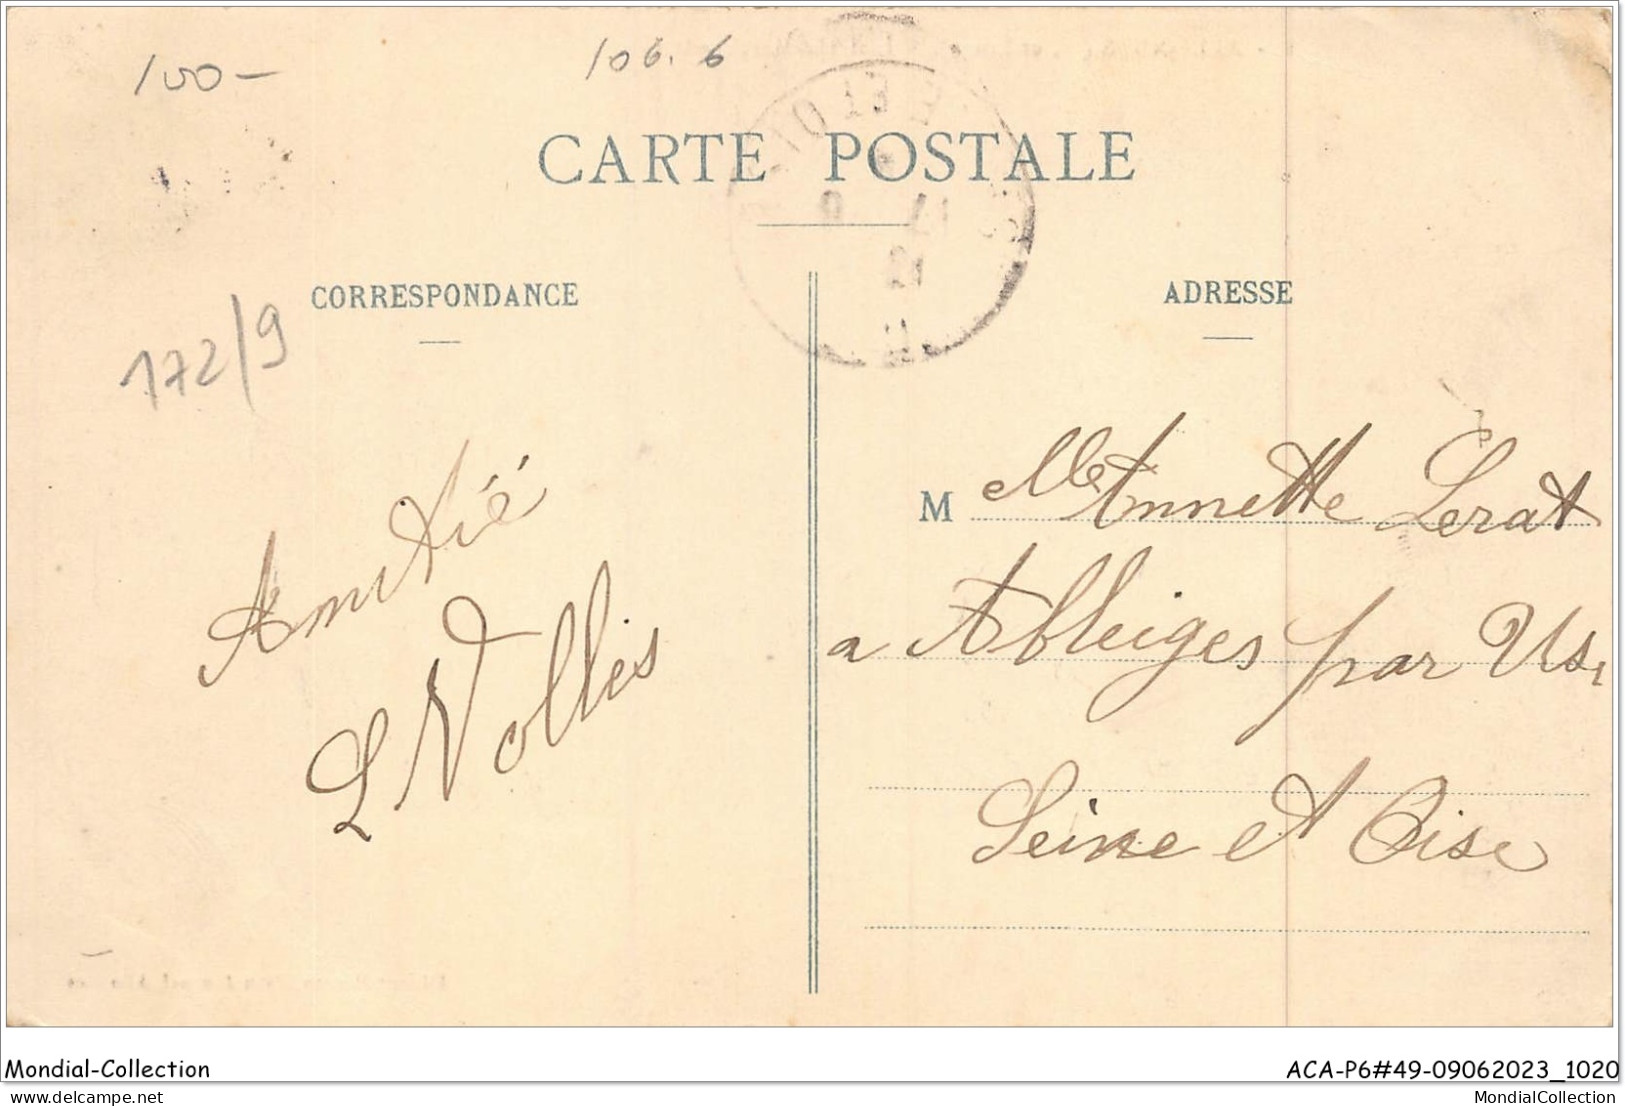 100-
106.6
CARTE POSTALE
CORRESPONDANCE
ADRESSE
172/9
Amitié
L Nollis
M elle Annette Lerat
a Ableiges par Us,
Seine et Oise
Mondial-Collection
ACA-P6#49-09062023_1020
MondialCollection